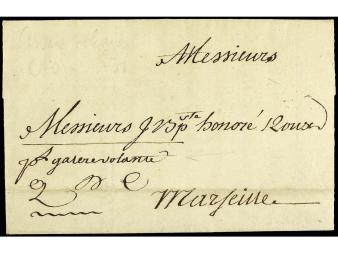 Messieurs
Messieurs J Bpte honoré Roux
pr galere volante
2 de
Marseille